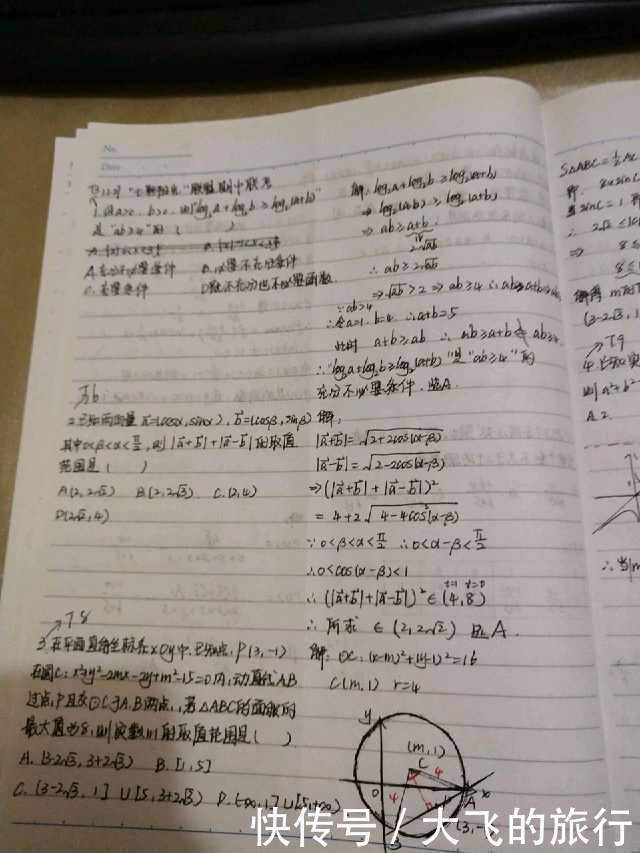 No.
Date
1.设a>0, b>0, 则"log₂a+log₂b≥log₂(a+b)"
是"ab≥4"的 (    )
A.充分不必要条件 B.必要不充分条件
C.充要条件 D.既不充分也不必要条件
解: log₂a+log₂b≥log₂(a+b)
⇒ log₂(ab)≥log₂(a+b)
⇒ ab≥a+b
2√ab
∴ ab≥2√ab
⇒√ab≥2⇒ab≥4
∵ab≥4
∴令a=1, b=4 ∴a+b=5
此时 a+b≥ab
∴"log₂a+log₂b≥log₂(a+b)"是"ab≥4"的
充分不必要条件, 选A.
T6
2.已知向量a=(cosα,sinα), b=(cosβ,sinβ)
其中0<β<α<π/2, 则|a+b|+|a-b|的取值
范围是 (    )
A.(2,2√2) B.(2,2√3) C.(2,4)
D.(2√2,4)
解:
|a+b|=√2+2cos(α-β)
|a-b|=√2-2cos(α-β)
⇒(|a+b|+|a-b|)²
=4+2√4-4cos²(α-β)
∵0<β<α<π/2 ∴0<α-β<π/2
∴0<cos(α-β)<1
∴(|a+b|+|a-b|)²∈(4,8)
∴所求∈(2,2√2) 选A.
T8
3.在平面直角坐标系xOy中,已知点P(3,-1)
在圆C: x²+y²-2mx-2y+m²-15=0内,动直线AB
过点P且交⊙C于A.B两点,若△ABC的面积的
最大值为8,则实数m的取值范围是 (    )
A.(3-2√3,3+2√3) B.[1,5]
C.(3-2√3,1]∪[5,3+2√3) D.(-∞,1]∪[5,+∞)
解: ⊙C:(x-m)²+(y-1)²=16
C(m,1) r=4
y
(m,1)
C
4
4
0
A
x
B
(3,-1)
S△ABC=½AC
T9
4.已知实
则a²+b²
A.2
快传号 / 大飞的旅行